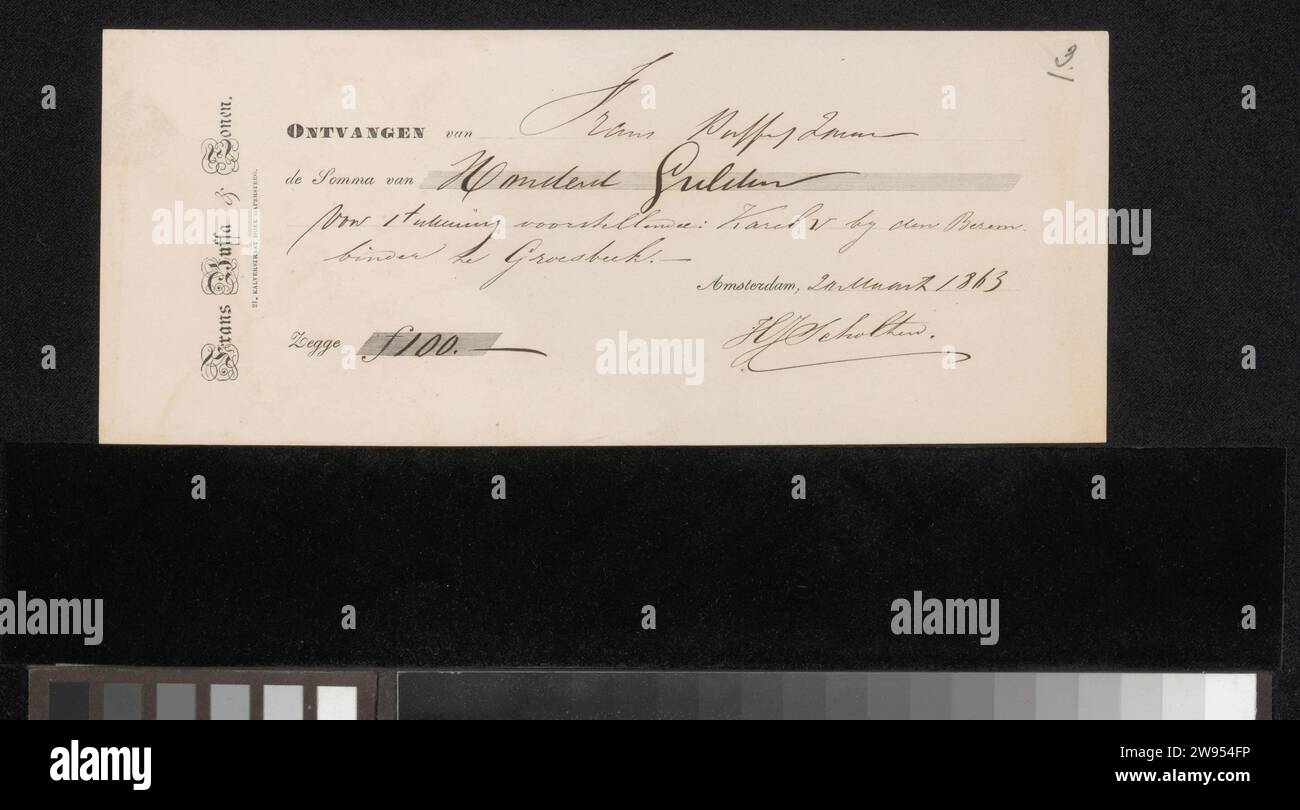 13.
Frans Buffa & Zonen.
21, KALVERSTRAAT HOEK GAPERSTEEG.
ONTVANGEN van Frans Buffa & Zonen
de Somma van Honderd Gulden
voor 1 teekening voorstellende: Karel V by den Bezem-
binder te Groesbeek.—
Amsterdam, 20 Maart 1863
Zegge f 100.—
HJScholten.
alamy
alamy
alamy
alamy
alamy
alamy
Image ID: 2W954FP
www.alamy.com